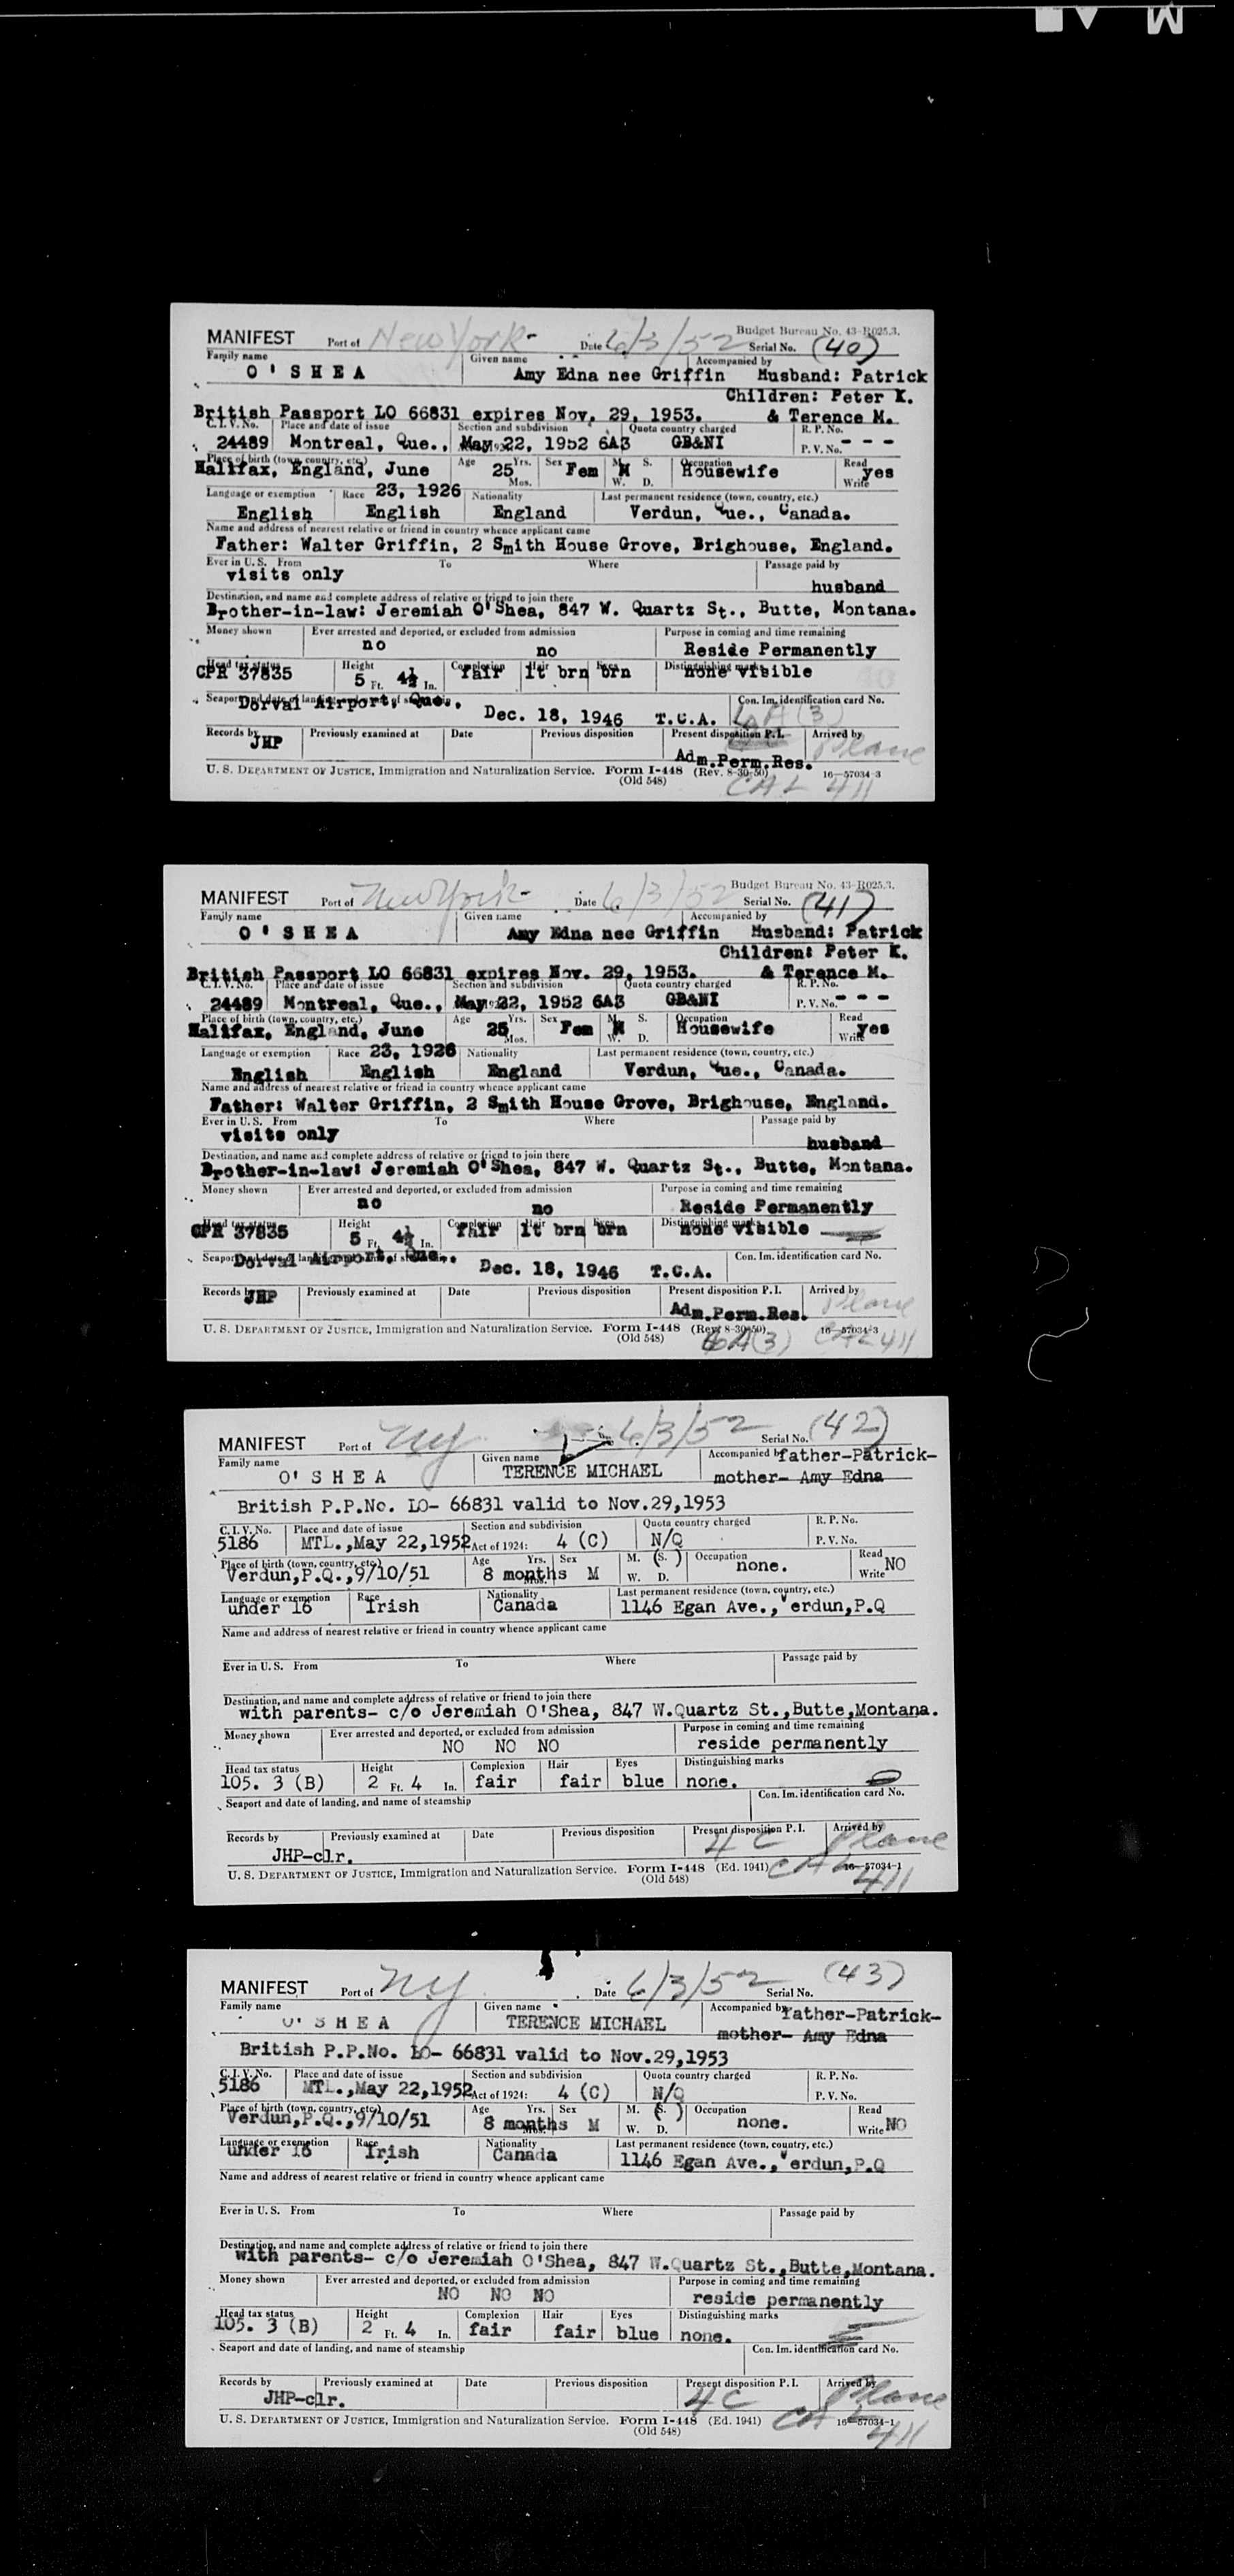 M
MANIFEST Port of New York - Date 6/3/52 Budget Bureau No. 43-R025.3.
Serial No. (40)
Family name Given name Accompanied by
O'SHEA Amy Edna nee Griffin Husband: Patrick
Children: Peter K.
British Passport LO 66831 expires Nov. 29, 1953. & Terence M.
C. I. V. No. Place and date of issue Section and subdivision Quota country charged R. P. No.
24489 Montreal, Que., May 22, 1952 6A3 GB&NI P. V. No. - - -
Place of birth (town, country, etc.) Age Yrs. Sex M. S. Occupation Read
Halifax, England, June 25 Mos. Fem M W. D. Housewife Write yes
Language or exemption Race 23, 1926 Nationality Last permanent residence (town, country, etc.)
English English England Verdun, Que., Canada.
Name and address of nearest relative or friend in country whence applicant came
Father: Walter Griffin, 2 Smith House Grove, Brighouse, England.
Ever in U. S. From To Where Passage paid by
visits only husband
Destination, and name and complete address of relative or friend to join there
Brother-in-law: Jeremiah O'Shea, 847 W. Quartz St., Butte, Montana.
Money shown Ever arrested and deported, or excluded from admission Purpose in coming and time remaining
no no Reside Permanently
Head tax status Height Complexion Hair Eyes Distinguishing marks
CPR 37835 5 Ft. 4½ In. fair lt brn brn none visible
Seaport and date of landing, and name of steamship Con. Im. identification card No.
Dorval Airport, Que., Dec. 18, 1946 T.C.A. 6A(3)
Records by Previously examined at Date Previous disposition Present disposition P. I. Arrived by
JHP Adm.Perm.Res. Plane
U. S. DEPARTMENT OF JUSTICE, Immigration and Naturalization Service. Form I-448 (Rev. 8-30-50) 16-57034-3
(Old 548) CAL 411
MANIFEST Port of New York - Date 6/3/52 Budget Bureau No. 43-R025.3.
Serial No. (41)
Family name Given name Accompanied by
O'SHEA Amy Edna nee Griffin Husband: Patrick
Children: Peter K.
British Passport LO 66831 expires Nov. 29, 1953. & Terence M.
C. I. V. No. Place and date of issue Section and subdivision Quota country charged R. P. No.
24489 Montreal, Que., May 22, 1952 6A3 GB&NI P. V. No. - - -
Place of birth (town, country, etc.) Age Yrs. Sex M. S. Occupation Read
Halifax, England, June 25 Mos. Fem M W. D. Housewife Write yes
Language or exemption Race 23, 1926 Nationality Last permanent residence (town, country, etc.)
English English England Verdun, Que., Canada.
Name and address of nearest relative or friend in country whence applicant came
Father: Walter Griffin, 2 Smith House Grove, Brighouse, England.
Ever in U. S. From To Where Passage paid by
visits only husband
Destination, and name and complete address of relative or friend to join there
Brother-in-law: Jeremiah O'Shea, 847 W. Quartz St., Butte, Montana.
Money shown Ever arrested and deported, or excluded from admission Purpose in coming and time remaining
no no Reside Permanently
Head tax status Height Complexion Hair Eyes Distinguishing marks
CPR 37835 5 Ft. 4½ In. fair lt brn brn none visible
Seaport and date of landing, and name of steamship Con. Im. identification card No.
Dorval Airport, Que., Dec. 18, 1946 T.C.A.
Records by Previously examined at Date Previous disposition Present disposition P. I. Arrived by
JHP Adm.Perm.Res. Plane
U. S. DEPARTMENT OF JUSTICE, Immigration and Naturalization Service. Form I-448 (Rev. 8-30-50) 16-57034-3
(Old 548) 6A(3) CAL 411
MANIFEST Port of NY 6/3/52 Serial No. (42)
Family name Given name Accompanied by father-Patrick-
O'SHEA TERENCE MICHAEL mother- Amy Edna
British P.P.No. LO- 66831 valid to Nov.29,1953
C. I. V. No. Place and date of issue Section and subdivision Quota country charged R. P. No.
5186 MTL.,May 22,1952 Act of 1924: 4 (C) N/Q P. V. No.
Place of birth (town, country, etc.) Age Yrs. Sex M. (S.) Occupation Read
Verdun,P.Q.,9/10/51 8 months Mos. M W. D. none. Write NO
Language or exemption Race Nationality Last permanent residence (town, country, etc.)
under 16 Irish Canada 1146 Egan Ave., Verdun,P.Q
Name and address of nearest relative or friend in country whence applicant came
Ever in U. S. From To Where Passage paid by
Destination, and name and complete address of relative or friend to join there
with parents- c/o Jeremiah O'Shea, 847 W.Quartz St.,Butte,Montana.
Money shown Ever arrested and deported, or excluded from admission Purpose in coming and time remaining
NO NO NO reside permanently
Head tax status Height Complexion Hair Eyes Distinguishing marks
105. 3 (B) 2 Ft. 4 In. fair fair blue none.
Seaport and date of landing, and name of steamship Con. Im. identification card No.
Records by Previously examined at Date Previous disposition Present disposition P. I. Arrived by
JHP-clr. 4C Plane
U. S. DEPARTMENT OF JUSTICE, Immigration and Naturalization Service. Form I-448 (Ed. 1941) 16-57034-1
(Old 548) CAL 411
MANIFEST Port of NY Date 6/3/52 Serial No. (43)
Family name Given name Accompanied by father-Patrick-
O'SHEA TERENCE MICHAEL mother- Amy Edna
British P.P.No. LO- 66831 valid to Nov.29,1953
C. I. V. No. Place and date of issue Section and subdivision Quota country charged R. P. No.
5186 MTL.,May 22,1952 Act of 1924: 4 (C) N/Q P. V. No.
Place of birth (town, country, etc.) Age Yrs. Sex M. (S.) Occupation Read
Verdun,P.Q.,9/10/51 8 months Mos. M W. D. none. Write NO
Language or exemption Race Nationality Last permanent residence (town, country, etc.)
under 16 Irish Canada 1146 Egan Ave., Verdun,P.Q
Name and address of nearest relative or friend in country whence applicant came
Ever in U. S. From To Where Passage paid by
Destination, and name and complete address of relative or friend to join there
with parents- c/o Jeremiah O'Shea, 847 W.Quartz St.,Butte,Montana.
Money shown Ever arrested and deported, or excluded from admission Purpose in coming and time remaining
NO NO NO reside permanently
Head tax status Height Complexion Hair Eyes Distinguishing marks
105. 3 (B) 2 Ft. 4 In. fair fair blue none.
Seaport and date of landing, and name of steamship Con. Im. identification card No.
Records by Previously examined at Date Previous disposition Present disposition P. I. Arrived by
JHP-clr. 4C Plane
U. S. DEPARTMENT OF JUSTICE, Immigration and Naturalization Service. Form I-448 (Ed. 1941) 16-57034-1
(Old 548) CAL 411